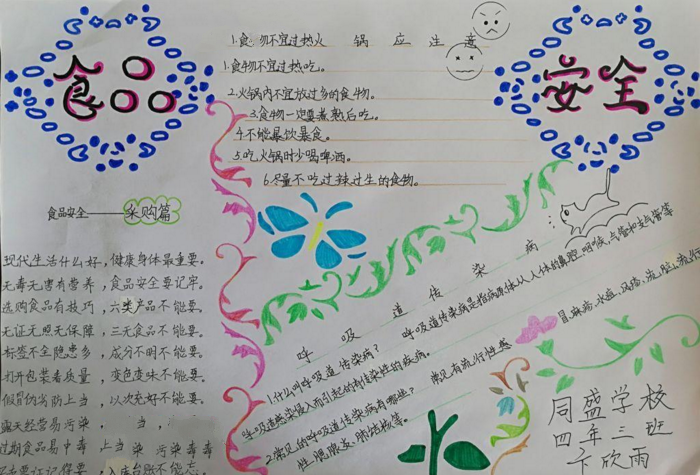 食品
安全
1.食物不宜过热火 锅 应 注 意
1.食物不宜过热吃。
2.火锅内不宜放过多的食物。
3.食物一定要煮熟后吃。
4.不能暴饮暴食。
5.吃火锅时少喝啤酒。
6.尽量不吃过辣过生的食物。
食品安全——采购篇
现代生活什么好,健康身体最重要。
无毒无害有营养,食品安全要记牢。
选购食品有技巧,六类产品不能要。
无证无照无保障,三无食品不能要。
标签不全隐患多,成分不明不能要。
打开包装看质量,变色变味不能要。
假冒伪劣防上当,以次充好不能要。
露天经营易污染,当,
过期食品易中毒 上当 染 污染 毒毒
呼 吸 道 传 染 病
1.什么叫呼吸道传染病? 呼吸道传染病是指病原体从人体的鼻腔、咽喉、气管和支气管等
呼吸道感染侵入而引起的有传染性的疾病。
2.常见的呼吸道传染病有哪些? 常见有流行性感
冒、麻疹、水痘、风疹、流
性腮腺炎、肺结核等。
同盛学校
四年三班
卞欣雨